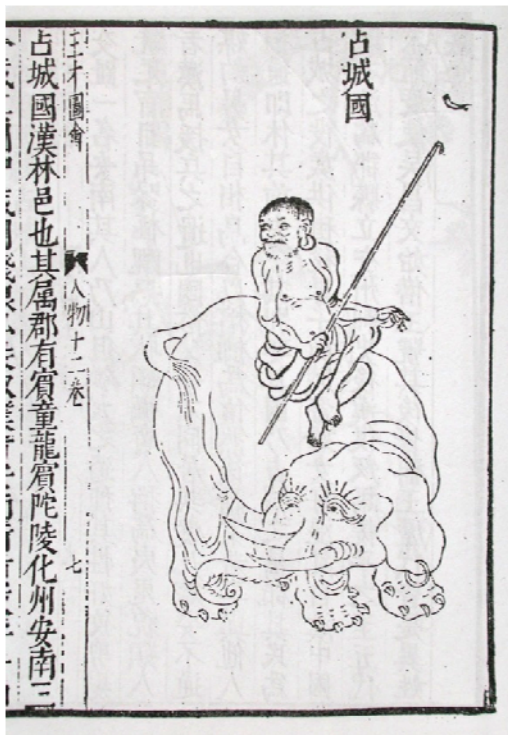 占城國
三才圖會 人物十二卷 七
占城國漢林邑也其属郡有賓童龍賓陀陵化州安南三